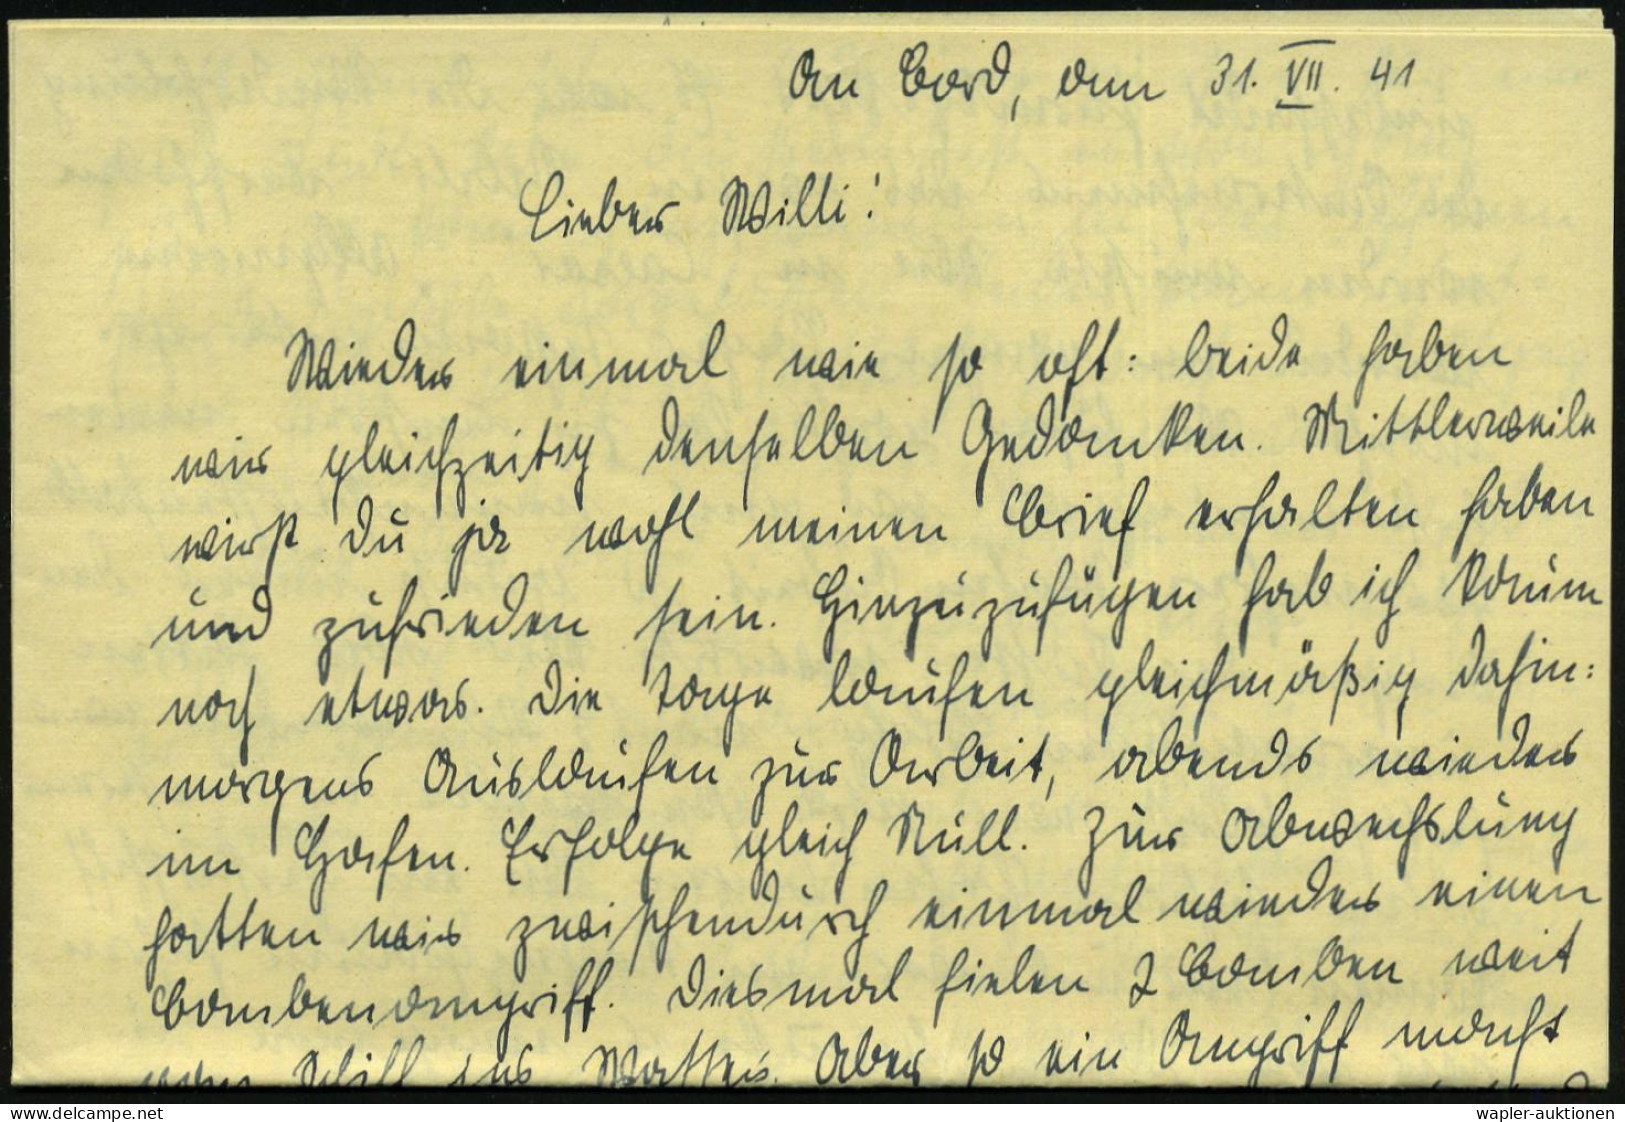 An Bord, den 31. VII. 41
Lieber Willi!
Wieder einmal wie so oft: beide haben
wir gleichzeitig denselben Gedanken. Mittlerweile
wirst Du ja wohl meinen Brief erhalten haben
und zufrieden sein. Hinzuzufügen hab ich kaum
noch etwas. Die Tage laufen gleichmäßig dahin:
morgens Auslaufen zur Arbeit, abends wieder
im Hafen. Erfolge gleich Null. Zur Abwechslung
hatten wir zwischendurch einmal wieder einen
Bombenangriff. Diesmal fielen 2 Bomben weit
vom Schiff ins Wasser. Aber so ein Angriff macht
delcampe.net
wapler-auktionen